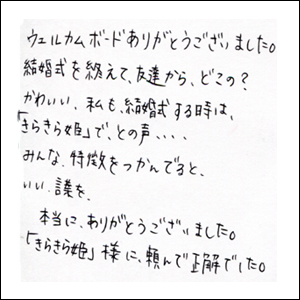 ウェルカムボードありがとうございました。
結婚式を終えて、友達から、どこの？
かわいい、私も、結婚式する時は、
「きらきら姫」で、との声、、、、
みんな、特徴をつかんでると、
いい、評を、
本当に、ありがとうございました。
「きらきら姫」様に、頼んで正解でした。